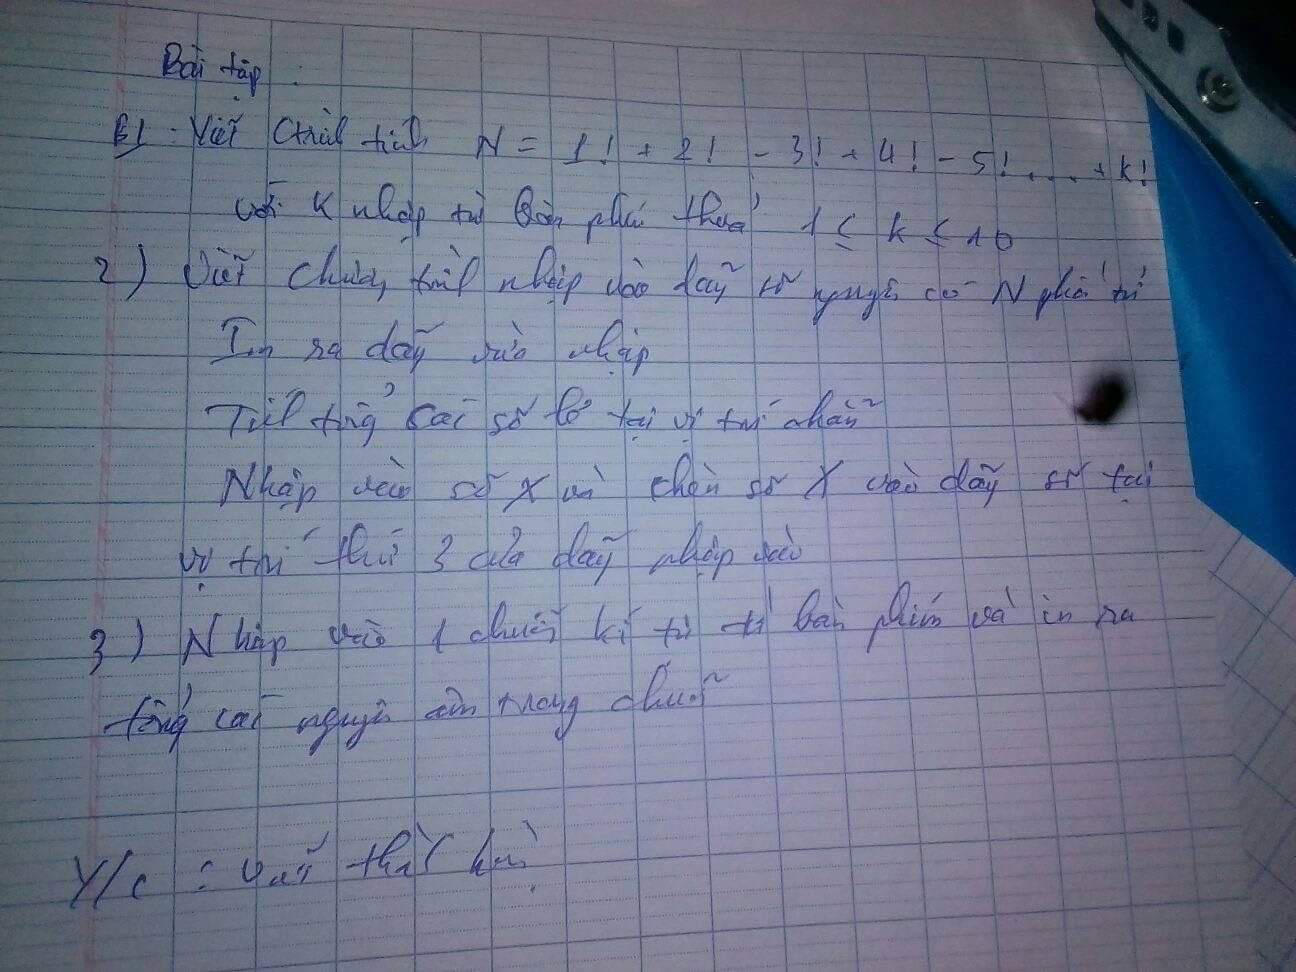 Bài tập :
B1 : Viết Ctrình tính N = 1! + 2! - 3! + 4! - 5! .... + k!
với K nhập từ bàn phím thoả 1 ≤ k ≤ 10
2) Viết chương trình nhập vào dãy số nguyên có N phần tử
In ra dãy vừa nhập
Tính tổng các số lẻ tại vị trí chẵn
Nhập vào số X và chèn số X vào dãy số tại
vị trí thứ 3 của dãy nhập vào
3) Nhập vào 1 chuỗi kí tự từ bàn phím và in ra
tổng các nguyên âm trong chuỗi
Y/c : Viết